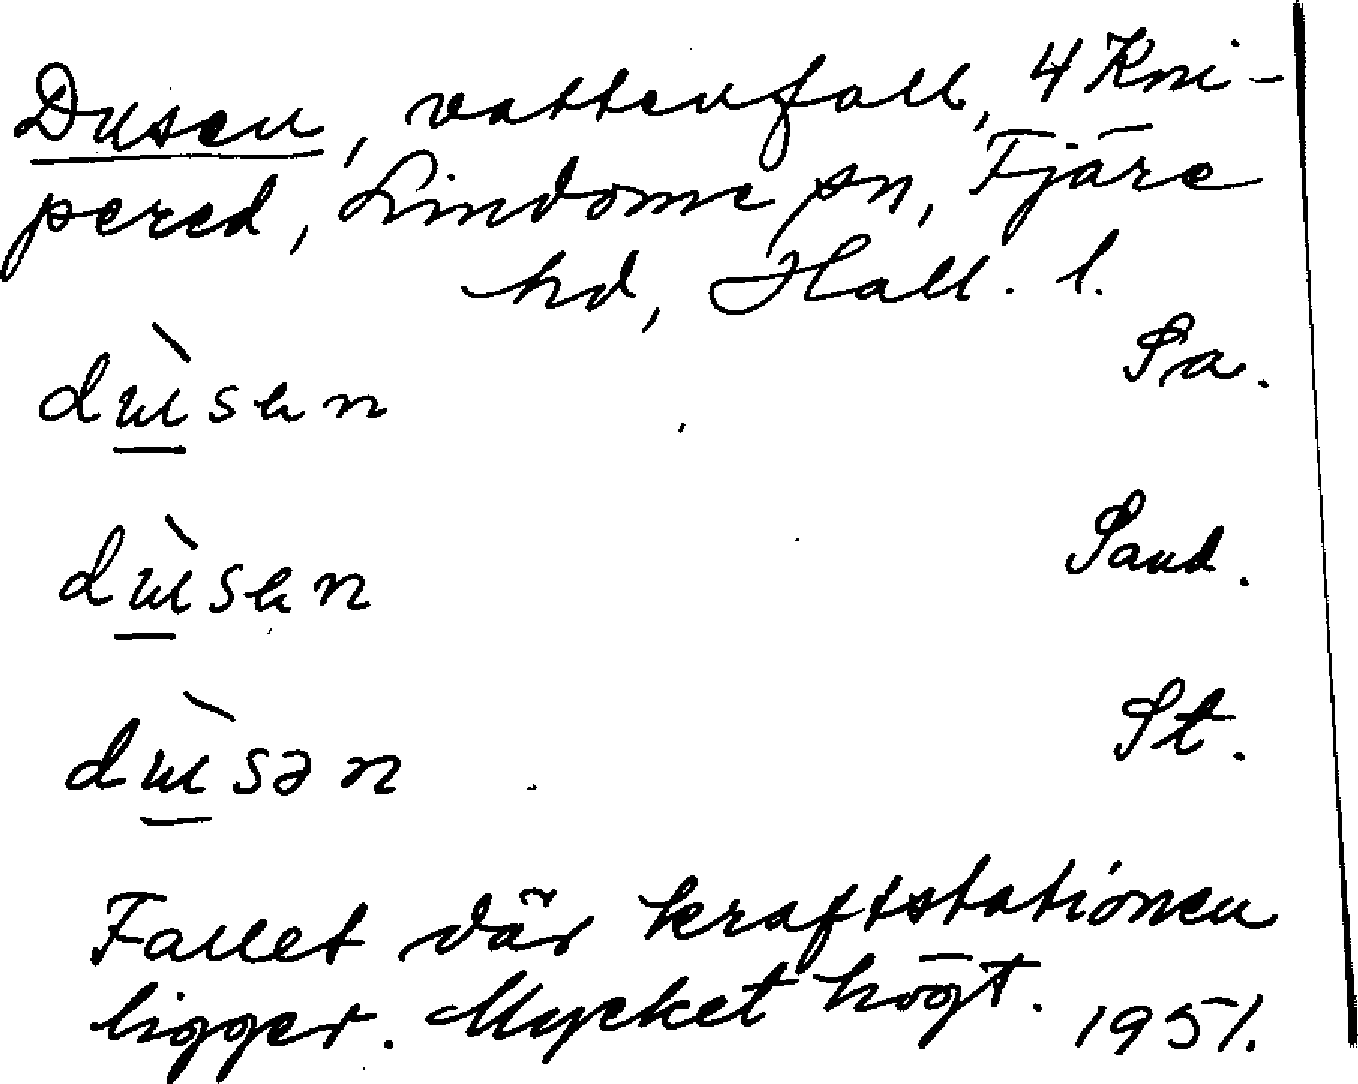 Dusen, vattenfall, 4 Kni-
pered, Lindome sn, Fjäre
hd, Hall. l.
dɯ̀sen Sa.
dɯ̀sen Sand.
dɯ̀sən St.
Fallet där kraftstationen
ligger. Mycket högt. 1951.